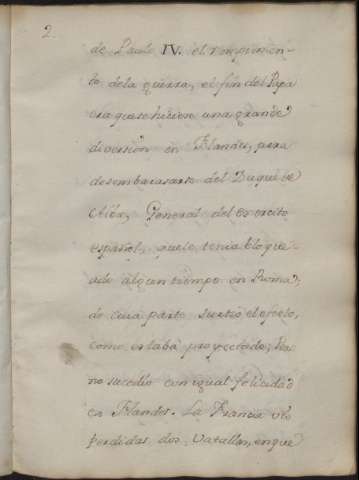 2
de Paulo IV. el rompimien-
to dela guerra, el fin del Papa
era que se hiciese una grande
diversion en Flandes, para
desembarasarse del Duque de
General del exercito
español, que le tenia bloque-
ado algun tiempo en Roma,
de cuia parte surtio el efecto,
como estaba proyectado;
no sucedio con igual felicidad
en Flandes. La Francia vio
perdidas dos Batallas, en que